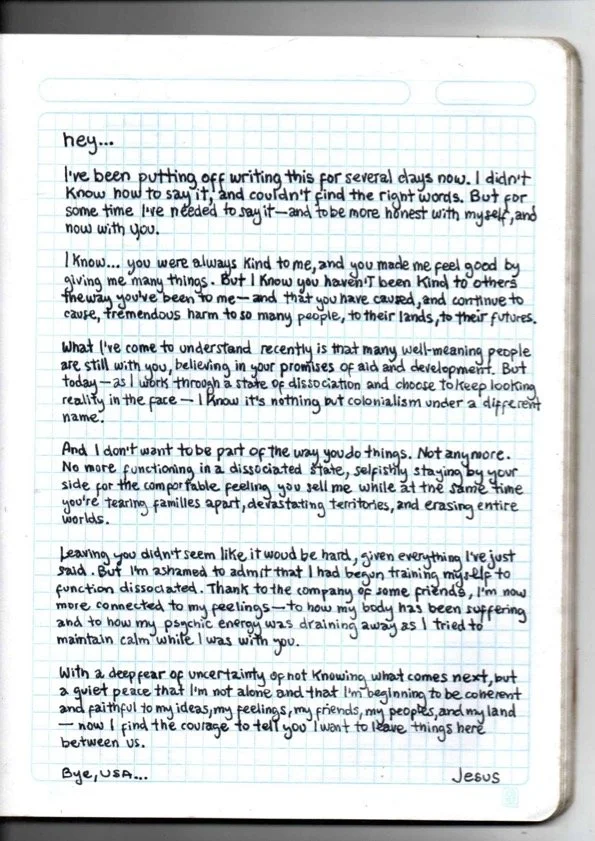 hey...
I've been putting off writing this for several days now. I didn't
know how to say it, and couldn't find the right words. But for
some time I've needed to say it—and to be more honest with myself, and
now with you.
I know... you were always kind to me, and you made me feel good by
giving me many things. But I know you haven't been kind to others
the way you've been to me—and that you have caused, and continue to
cause, tremendous harm to so many people, to their lands, to their futures.
What I've come to understand recently is that many well-meaning people
are still with you, believing in your promises of aid and development. But
today—as I work through a state of dissociation and choose to keep looking
reality in the face—I know it's nothing but colonialism under a different
name.
And I don't want to be part of the way you do things. Not anymore.
No more functioning in a dissociated state, selfishly staying by your
side for the comfortable feeling you sell me while at the same time
you're tearing families apart, devastating territories, and erasing entire
worlds.
Leaving you didn't seem like it woud be hard, given everything I've just
said. But I'm ashamed to admit that I had begun training myself to
function dissociated. Thank to the company of some friends, I'm now
more connected to my feelings—to how my body has been suffering
and to how my psychic energy was draining away as I tried to
maintain calm while I was with you.
With a deep fear of uncertainty of not knowing what comes next, but
a quiet peace that I'm not alone and that I'm beginning to be coherent
and faithful to my ideas, my feelings, my friends, my peoples, and my land
— now I find the courage to tell you I want to leave things here
between us.
Bye, USA... Jesus